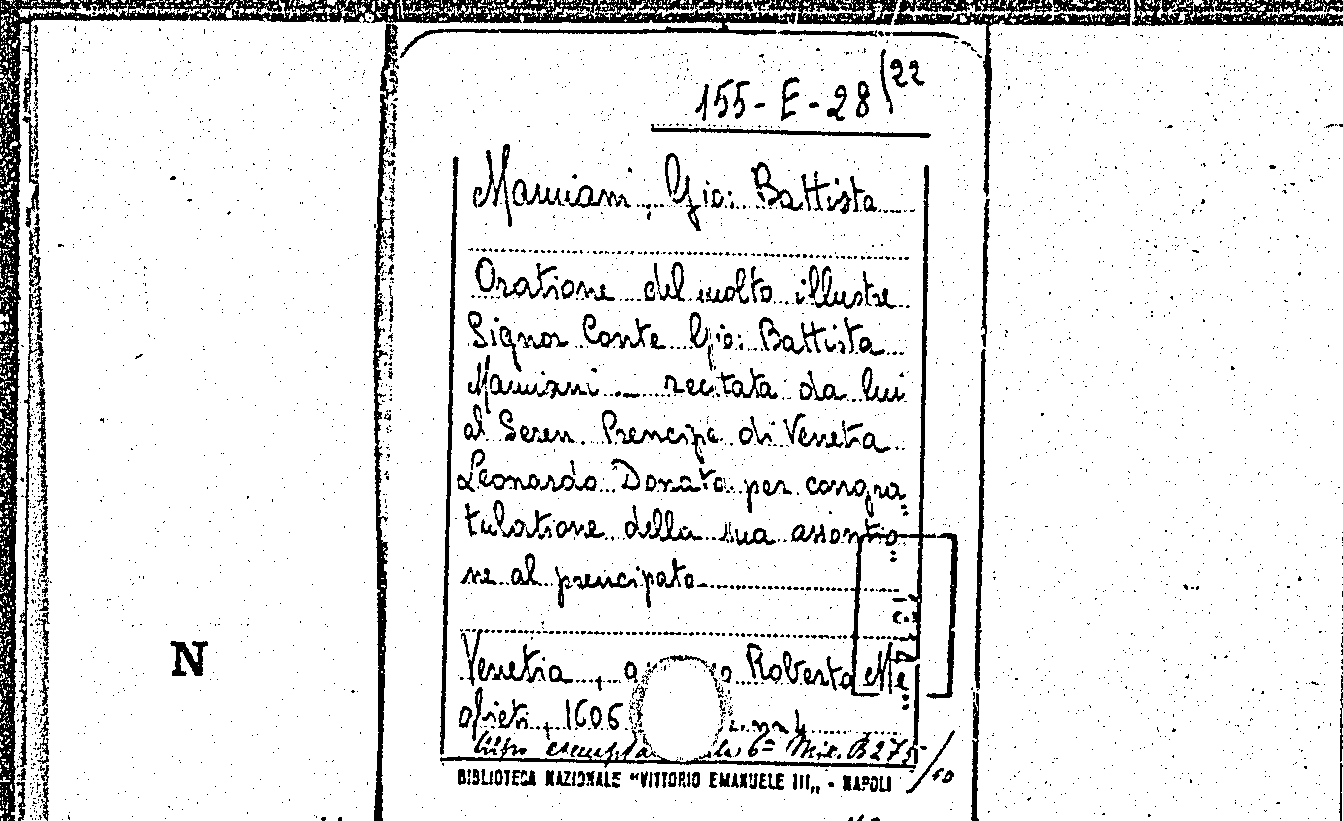 155-E-28(22
Mamiani, Gio: Battista
Oratione del molto illustre
Signor Conte Gio: Battista
Mamiani... recitata da lui
al Seren. Prencipe di Venetia
Leonardo Donato per congra
tulatione della sua assontio
ne al prencipato
Venetia, Roberto Me
glietti, 1606
N
Misc. B 275/10
BIBLIOTECA NAZIONALE "VITTORIO EMANUELE III„ - NAPOLI